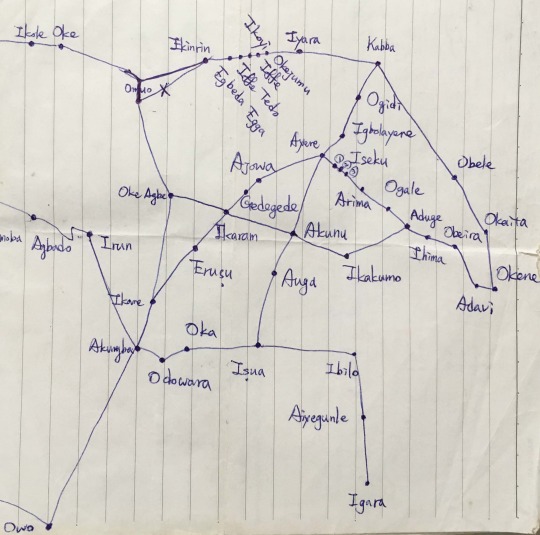 Ikole Oke
Ikinrin
Ikoyi
Iyara
Kabba
Okejumu
Iffe
Iffe Tedo
Egbeda Egga
Omuo
X
Ogidi
Igbolayere
Ayere
Iseku
Ajowa
Obele
Oke Agbe
Gedegede
Arima
Ogale
Aduge
Okaita
Agbado
Irun
Ikaram
Akunu
Ihima
Obeira
Erusu
Auga
Ikakumo
Okene
Adavi
Ikare
Akungba
Oka
Odowara
Isua
Ibilo
Aiyegunle
Igara
Owo